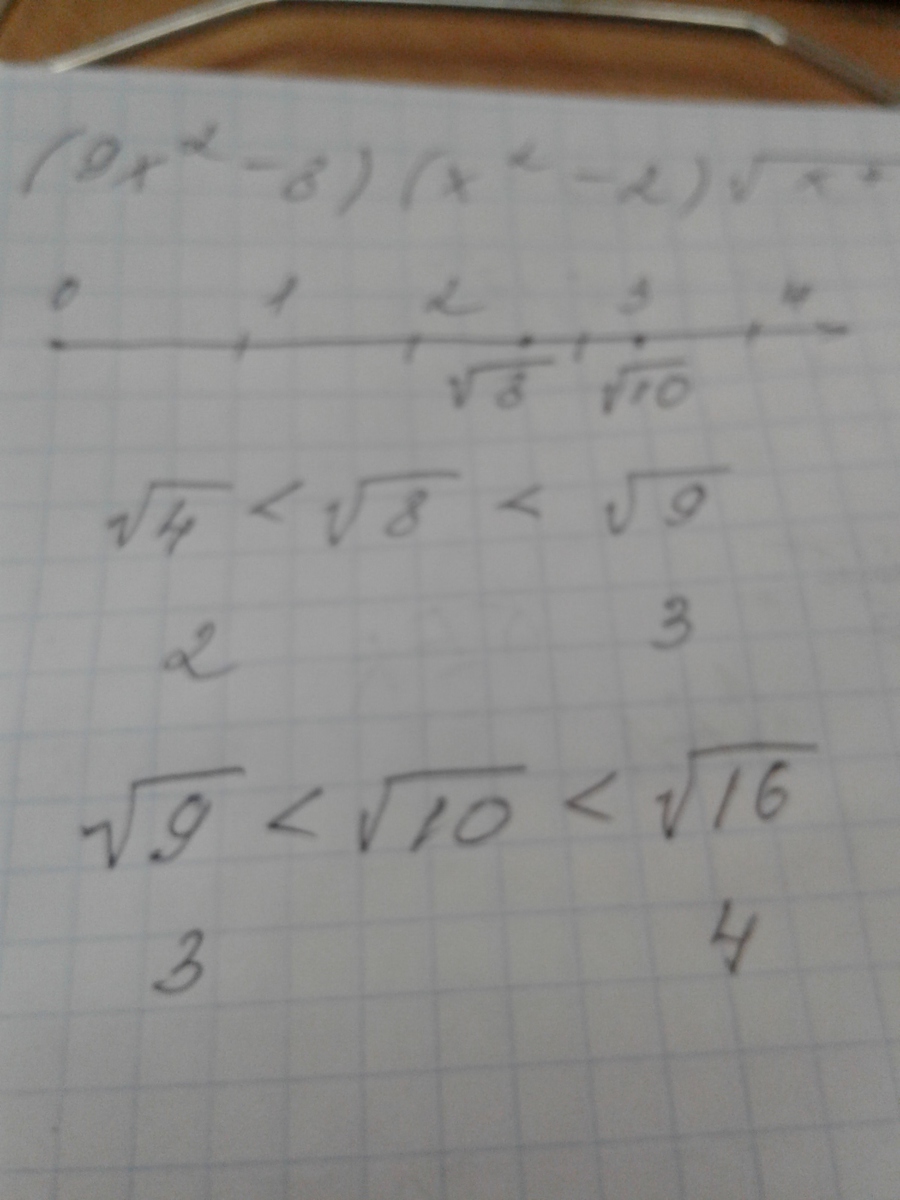 (9x² - 8)(x² - 2)√x²
0 1 2 3 4
√8 √10
√4 < √8 < √9
2 3
√9 < √10 < √16
3 4